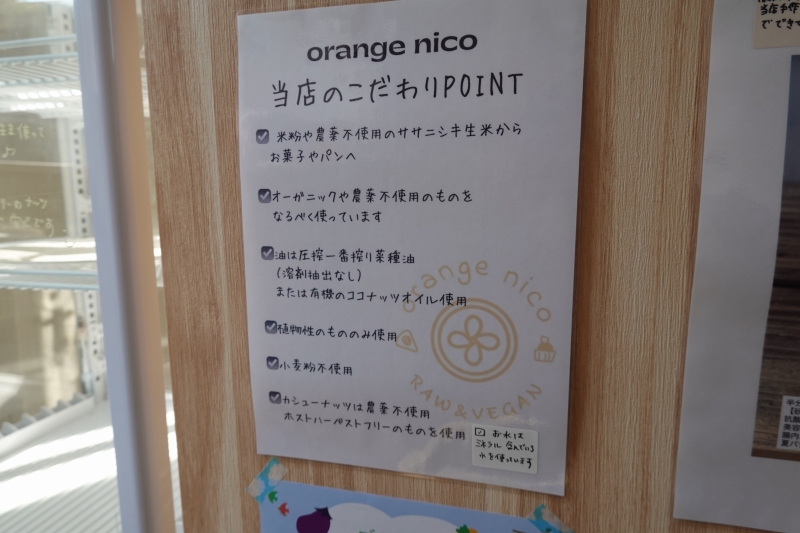 orange nico
当店のこだわりPOINT
☑ 米粉や農薬不使用のササニシキ生米から
お菓子やパンへ
☑オーガニックや農薬不使用のものを
なるべく使っています
☑油は圧搾一番搾り菜種油
(溶剤抽出なし)
または有機のココナッツオイル使用
☑植物性のもののみ使用
☑小麦粉不使用
☑カシューナッツは農薬不使用
ポストハーベストフリーのものを使用
orange nico
RAW & VEGAN
☑ お水は
ミネラル含んでいる
水を使っています
当店手作
でできて